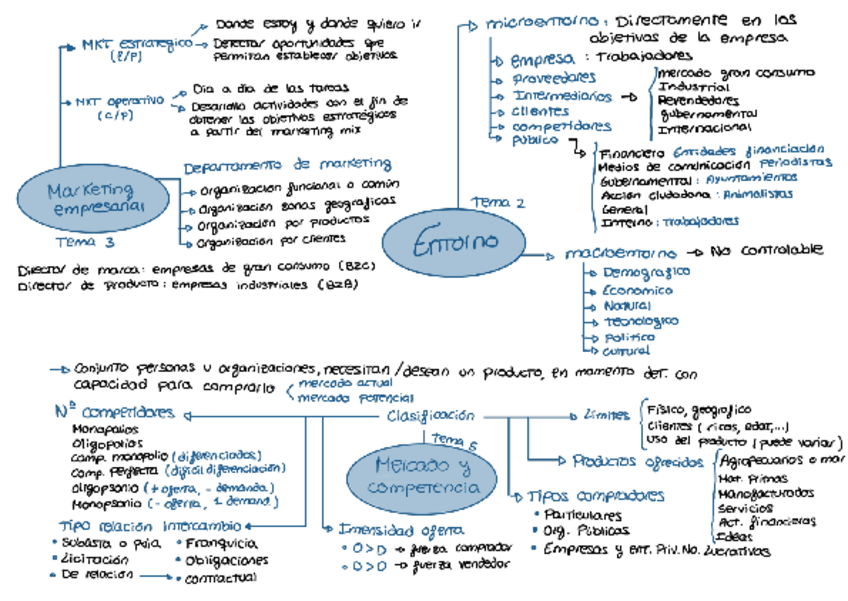 Donde estoy y donde quiero ir
MKT estratégico
(L/P)
Detectar oportunidades que
permitan establecer objetivos
Dia a dia de las tareas
MKT operativo
(C/P)
Desarrolla actividades con el fin de
obtener los objetivos estratégicos
a partir del marketing mix
Marketing
empresarial
Tema 3
Departamento de marketing
Organización funcional o común
Organización zonas geográficas
Organización por productos
Organización por clientes
Director de marca: empresas de gran consumo (B2C)
Director de Producto: empresas industriales (B2B)
microentorno: Directamente en los
objetivos de la empresa
empresa: Trabajadores
proveedores
Intermediarios
clientes
competidores
público
mercado gran consumo
Industrial
Revendedores
gubernamental
Internacional
Financiero Entidades financiación
Medios de comunicación Periodistas
Gubernamental: Ayuntamientos
Acción ciudadana: Animalistas
General
Interno: trabajadores
Tema 2
Entorno
macroentorno → No controlable
Demográfico
Económico
Natural
tecnológico
Político
cultural
Conjunto personas u organizaciones, necesitan/desean un producto, en momento det. con
capacidad para comprarlo
mercado actual
mercado potencial
Clasificación
Tema 5
Mercado y
competencia
Nº competidores
Monopolios
Oligopolios
Comp. monopolio (diferenciados)
Comp. perfecta (difícil diferenciación)
oligopsonio (+ oferta, - demanda)
Monopsonio (- oferta, 1 demand)
Tipo relación intercambio
• Subasta o puja
• Licitación
• De relación → contractual
• Franquicia
• Obligaciones
Intensidad oferta
• O>D → fuerza comprador
• O>D → fuerza vendedor
Límites
Físico, geográfico
Clientes (ricos, edad,...)
Uso del producto (puede variar)
Productos ofrecidos
Agropecuarios o mar
Mat. Primas
Manofacturados
Servicios
Act. financieras
Ideas
Tipos compradores
• Particulares
• Org. Públicas
• Empresas y ent. Priv. No. Lucrativas